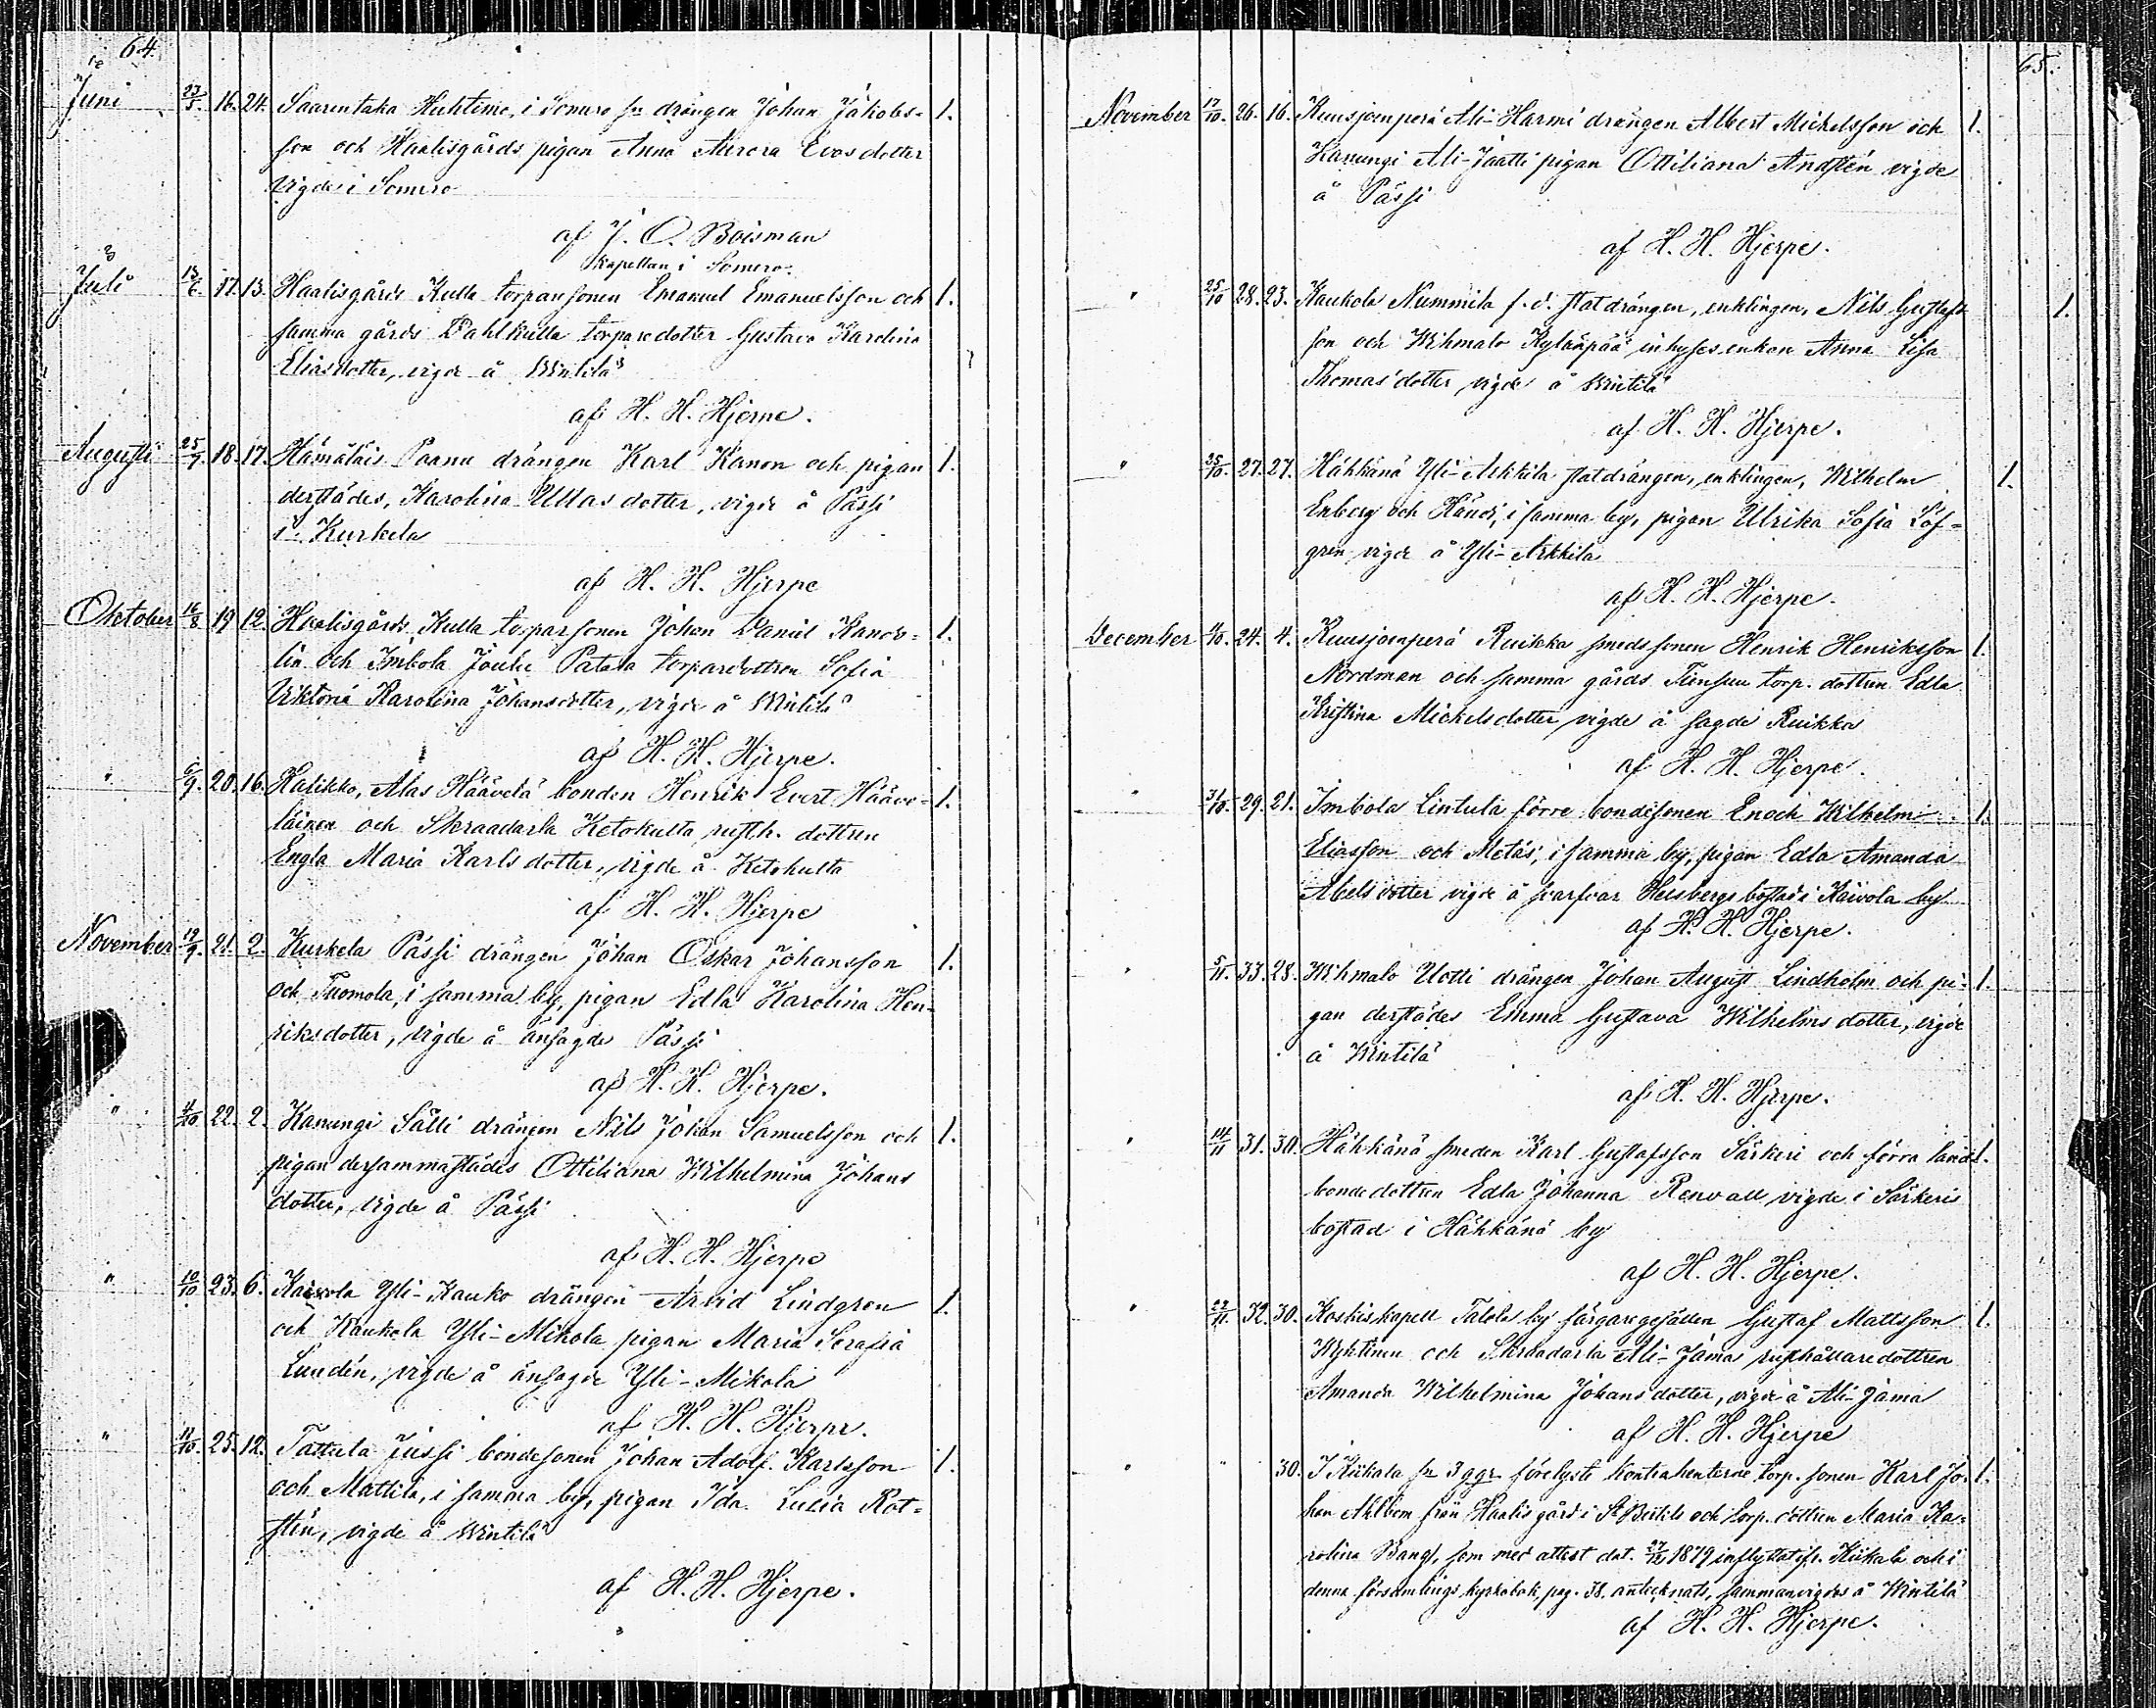 64.
Juni 23/5. 16. 24. Saarentaka Huhtimo, i Somero sn drängen Johan Jakobs- 1.
son och Haalisgårds pigan Anna Aurora Evasdotter
vigde i Somero
af J. O. Boisman
Kapellan i Somero.
Juli 13/6. 17. 13. Haalisgårds Kulla torparsonen Emanuel Emanuelsson och 1.
samma gårds Dahlkulla torparedotter Gustava Karolina
Eliasdotter, vigde å Wintilä
af H. H. Hjerpe.
Augusti 25/7. 18. 17. Hämäläis Paanu drängen Karl Kanon och pigan 1.
derstädes, Karolina Ullasdotter, vigde å Pässi
i Kurkela
af H. H. Hjerpe
Oktober 16/8. 19. 12. Haalisgårds Kulla torparsonen Johan Daniel Kando- 1.
lin och Imbola Joulu Patara torparedottren Sofia
Viktoria Karolina Johansdotter, vigde å Wintilä
af H. H. Hjerpe.
" 6/9. 20. 16. Halikko, Alas Häävelä bonden Henrik Evert Häävo- 1.
läinen och Skraadarla Ketokulta rusth. dottren
Engla Maria Karlsdotter, vigde å Ketokulta
af H. H. Hjerpe
November 19/9. 21. 2. Kurkela Pässi drängen Johan Oskar Johansson 1.
och Tuomola, i samma by, pigan Edla Karolina Hen-
riksdotter, vigde å ansagde Pässi
af H. H. Hjerpe.
" 4/10. 22. 2. Kanungi Sälli drängen Nils Johan Samuelsson och 1.
pigan dersammastädes Ottiliana Wilhelmina Johans
dotter, vigde å Pässi
af H. H. Hjerpe
" 10/10. 23. 6. Kaivola Yli-Kauko drängen Arvid Lindgren 1.
och Kaukola Yli-Mikola pigan Maria Serafia
Lundén, vigde å ansagde Yli-Mikola
af H. H. Hjerpe.
" 11/10. 25. 12. Tattula Jussi bondesonen Johan Adolf Karlsson 1.
och Mattila, i samma by, pigan Ida Lucia Rot-
stén, vigde å Wintilä
af H. H. Hjerpe.
65.
November 17/10. 26. 16. Kuusjoenperä Ali-Harmi drängen Albert Mickelsson och 1.
Kanungi Ali-Jaatti pigan Ottiliana Andstén vigde
å Pässi
af H. H. Hjerpe.
" 25/10. 28. 23. Kaukola Nummila f.d. statdrängen, enklingen, Nils Gustafs- 1.
son och Wihmalo Kylänpää inhyses enkan Anna Lisa
Thomasdotter vigde å Wintilä
af H. H. Hjerpe.
" 25/10. 27. 27. Hähkänä Yli-Arkkila statdrängen, enklingen, Wilhelm 1.
Enberg och Känd, i samma by, pigan Ulrika Sofia Löf-
gren vigde å Yli-Arkkila
af H. H. Hjerpe.
December 4/10. 24. 4. Kuusjoenperä Ruikka smedssonen Henrik Henriksson 1.
Nordman och samma gårds torp. dottren Edla
Kristina Mickelsdotter vigde å sagde Ruikka
af H. H. Hjerpe.
" 31/10. 29. 21. Imbola Lintula förre bondesonen Enoch Wilhelm 1.
Eliasson och Metäs, i samma by, pigan Edla Amanda
Abelsdotter vigde å svarfvar Helsbergs bostad i Kaivola by
af H. H. Hjerpe.
" 5/11. 33. 28. Wihmalo Uotti drängen Johan August Lindholm och pi- 1.
gan derstädes Emma Gustava Wilhelmsdotter, vigde
å Wintilä
af H. H. Hjerpe.
" 14/11. 31. 30. Hähkänä smeden Karl Gustafsson Särkeri och förra lands- 1.
bonde dottren Edla Johanna Renvall vigde i Särkeris
bostad i Hähkänä by
af H. H. Hjerpe.
" 22/11. 32. 30. Koskis kapell Talola by färgaregesällen Gustaf Mattsson 1.
och Skraadarla Ali-Jama rusthållaredottren
Amanda Wilhelmina Johansdotter, vigde å Ali-Jama
af H. H. Hjerpe
" " 30. I Kiikala sn 3 ggr förelyste kontrahenterne torp. sonen Karl Jo- 1.
han Ahlbom från Haalisgård i St Bertils och torp. dottren Maria Ka-
rolina Bang, som med attest dat. 1879 inflyttat ifr. Kiikala och i
denna församlings kyrkobok, pag. 38. antecknats, sammanvigdes å Wintilä
af H. H. Hjerpe.